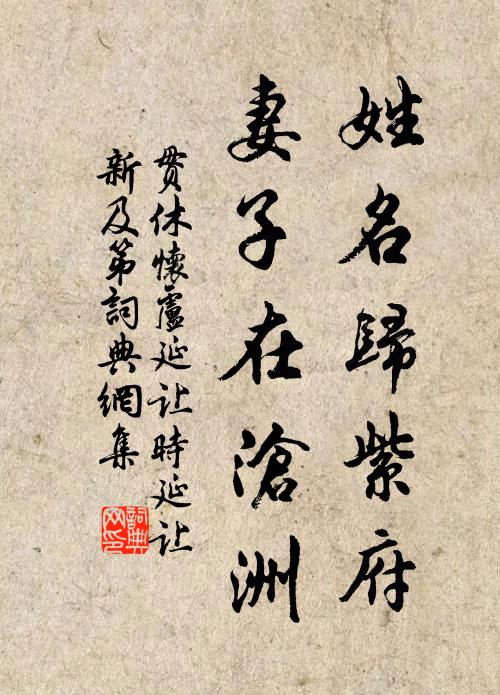 姓名歸紫府
妻子在滄洲
贯休懷盧延让時延让
新及第詞典網集
詞典网印